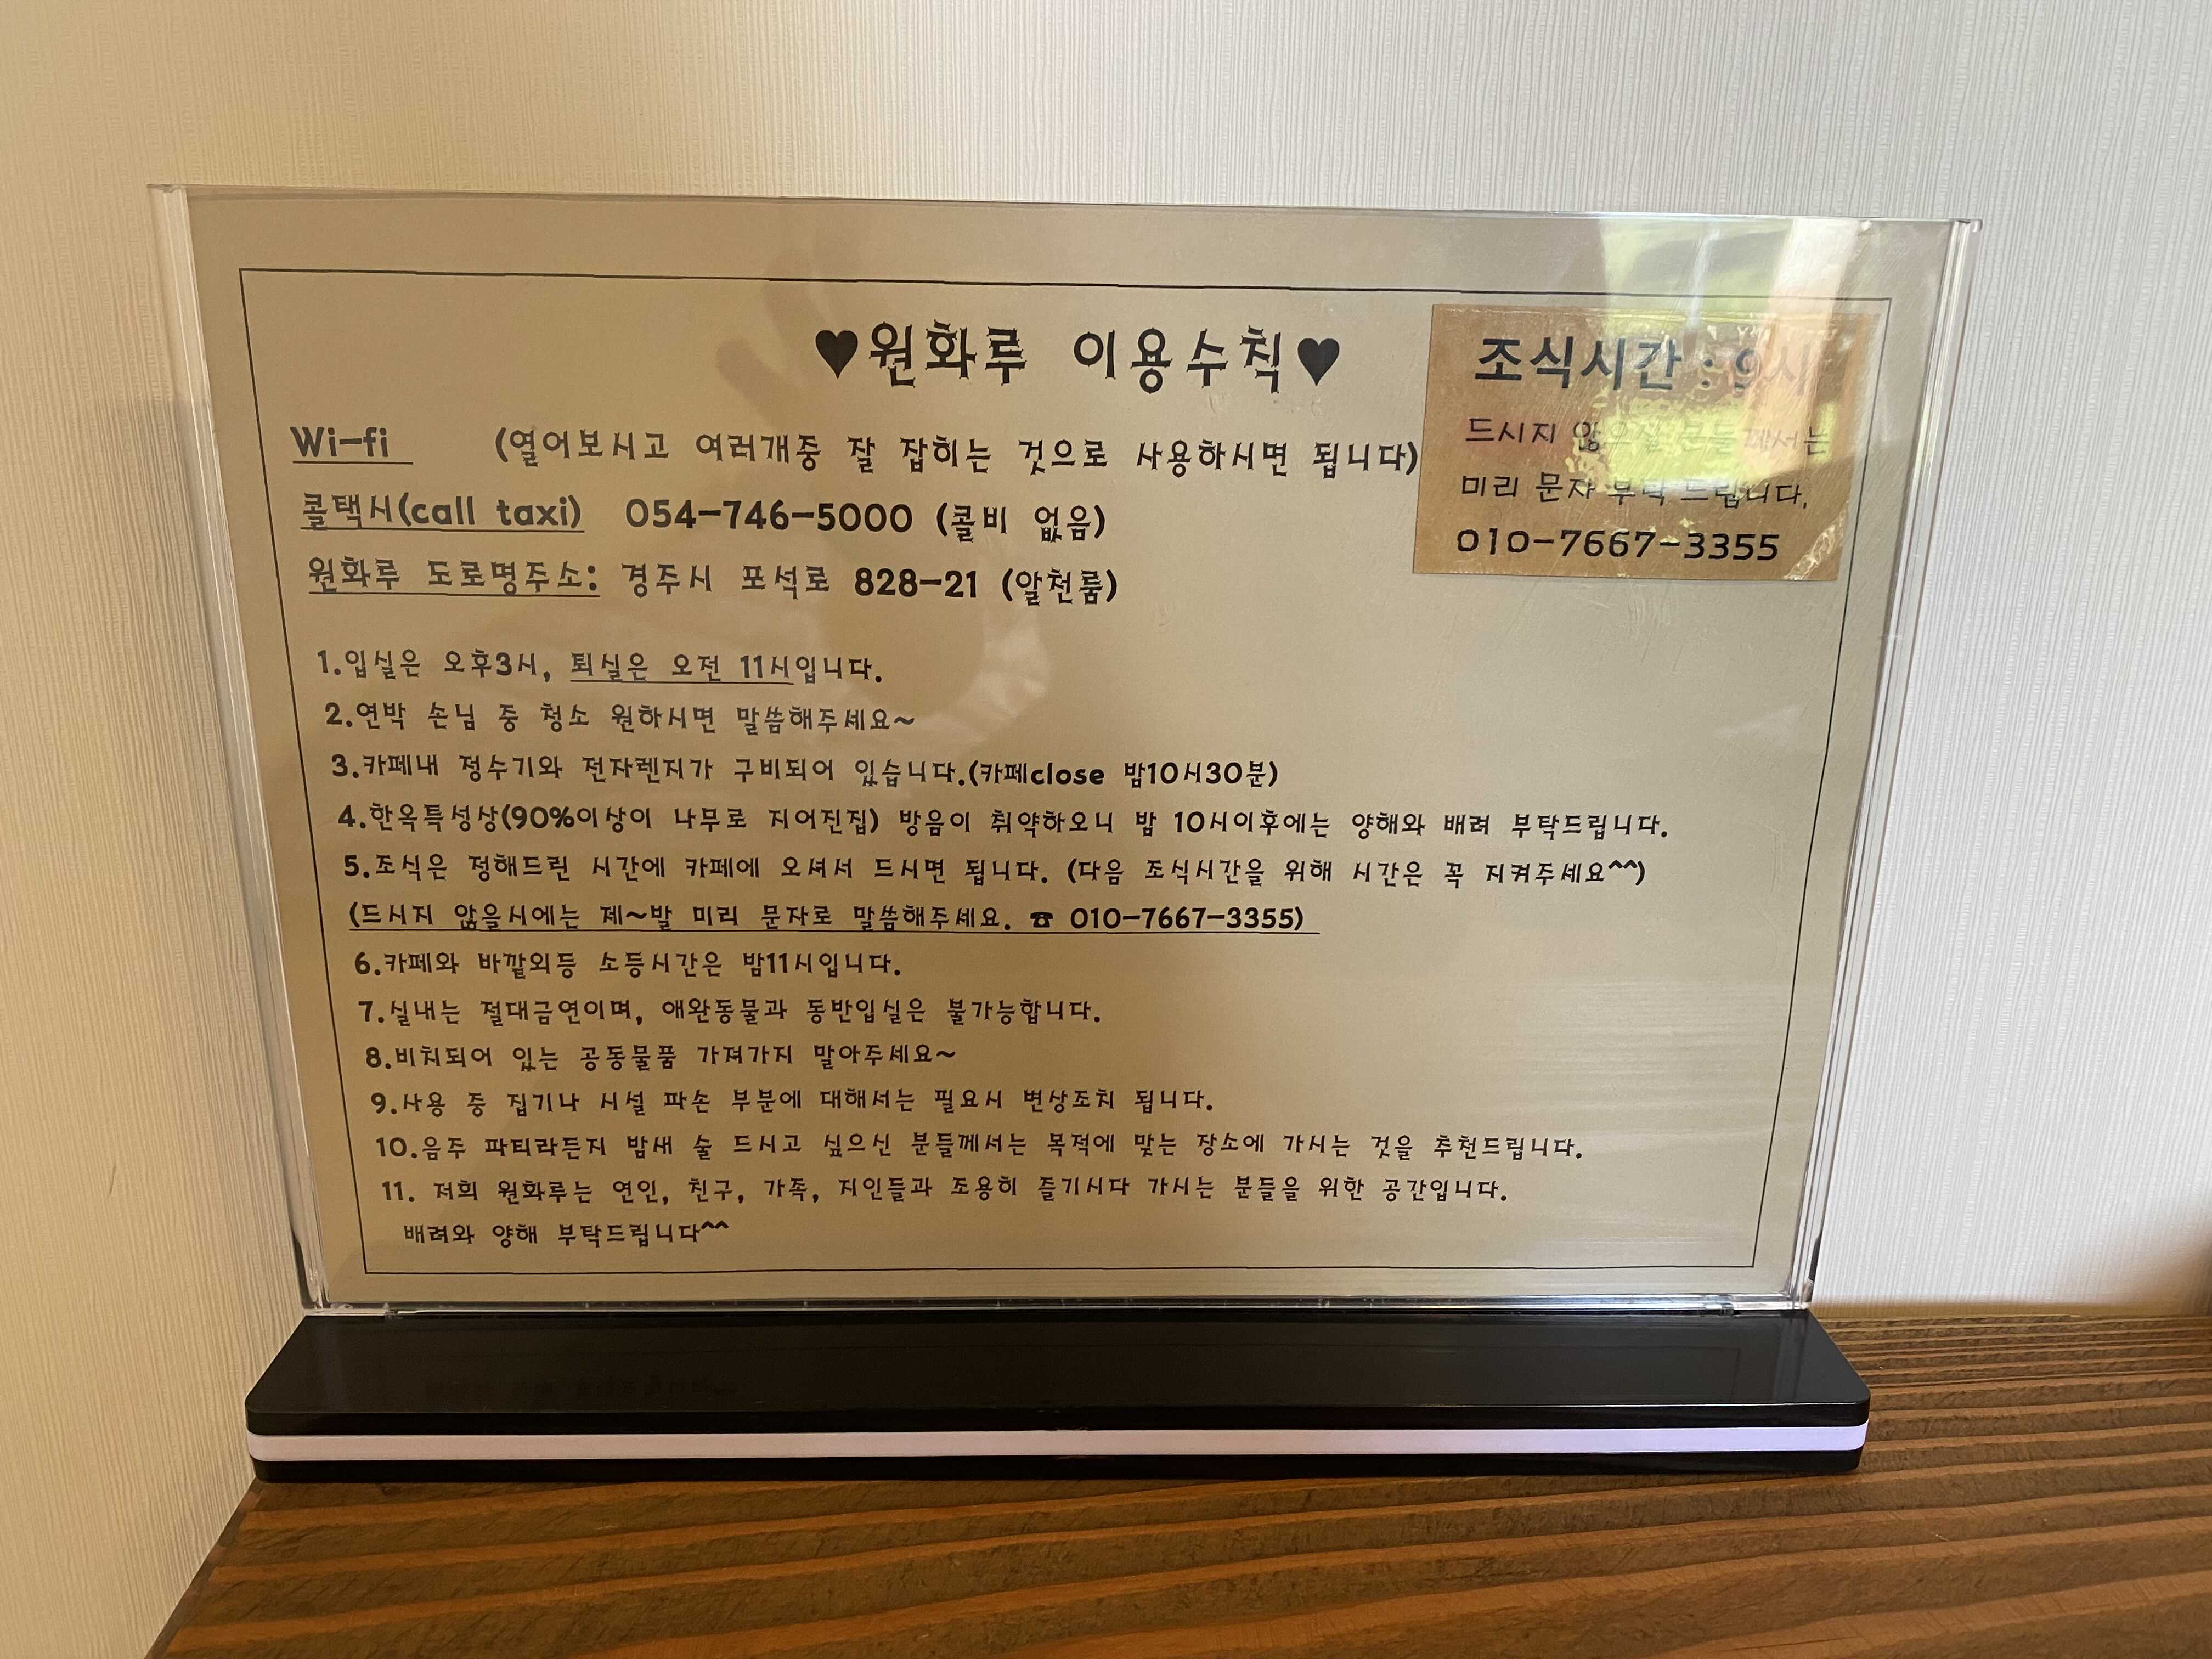 ♥원화루 이용수칙♥
조식시간 : 9시
드시지 않으실 분들께서는
미리 문자 부탁 드립니다.
010-7667-3355
Wi-fi (열어보시고 여러개중 잘 잡히는 것으로 사용하시면 됩니다)
콜택시(call taxi) 054-746-5000 (콜비 없음)
원화루 도로명주소: 경주시 포석로 828-21 (알천룸)
1.입실은 오후3시, 퇴실은 오전 11시입니다.
2.연박 손님 중 청소 원하시면 말씀해주세요~
3.카페내 정수기와 전자렌지가 구비되어 있습니다.(카페close 밤10시30분)
4.한옥특성상(90%이상이 나무로 지어진집) 방음이 취약하오니 밤 10시이후에는 양해와 배려 부탁드립니다.
5.조식은 정해드린 시간에 카페에 오셔서 드시면 됩니다. (다음 조식시간을 위해 시간은 꼭 지켜주세요^^)
(드시지 않을시에는 제~발 미리 문자로 말씀해주세요. ☎ 010-7667-3355)
6.카페와 바깥외등 소등시간은 밤11시입니다.
7.실내는 절대금연이며, 애완동물과 동반입실은 불가능합니다.
8.비치되어 있는 공동물품 가져가지 말아주세요~
9.사용 중 집기나 시설 파손 부분에 대해서는 필요시 변상조치 됩니다.
10.음주 파티라든지 밤새 술 드시고 싶으신 분들께서는 목적에 맞는 장소에 가시는 것을 추천드립니다.
11. 저희 원화루는 연인, 친구, 가족, 지인들과 조용히 즐기시다 가시는 분들을 위한 공간입니다.
배려와 양해 부탁드립니다^^